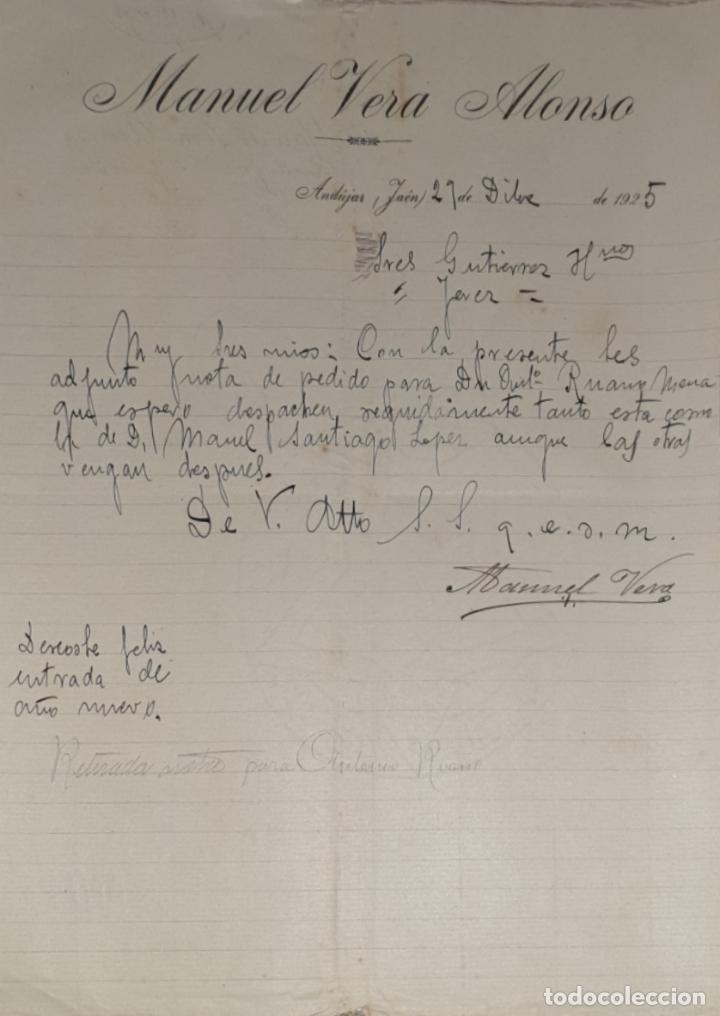 Manuel Vera Alonso
Andújar (Jaén) 27 de Dibre de 1925
Sres Gutierrez Hnos
" Jerez =
Muy Sres mios: Con la presente les
adjunto nota de pedido para Dn Antº Ruano Mena
que espero despachen seguidamente tanto esta como
la de D. Manuel Santiago Lopez aunque las otras
vengan despues.
De V. Atto S. S. q. e. s. m.
Manuel Vera
Deseoste feliz
entrada de
año nuevo.
Retirada nota para Antonio Ruano
todocoleccion